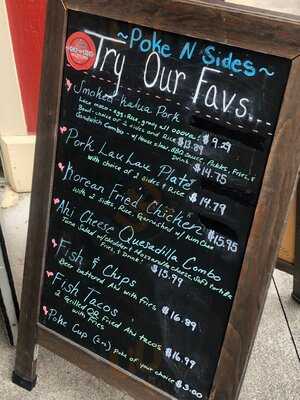 ~Poke N Sides~
Try Our Favs..
Smoked Kalua Pork
Loco moco - egg, Rice, gravy all ooova $9.29
Bowl - choice of 2 sides and Rice $13.89
Sandwich Combo - w/ house slaw, BBQ Sauce, Pickles, Fries, &
Drink
Pork Lau Lau Plate $14.75
with choice of 2 sides & Rice
Korean Fried Chicken $14.79
with 2 sides, Rice, Garnished w/ Kim Chee
Ahi Cheese Quesadilla Combo $15.95
Tuna Salad w/ cheddar & Mozzarella cheese, soft tortilla
Fries, & Drink
Fish & Chips $15.99
Beer battered Ahi with Fries
Fish Tacos $16.89
2 Grilled OR fried Ahi tacos
with Fries $16.99
Poke Cup pupu of your choice $3.00